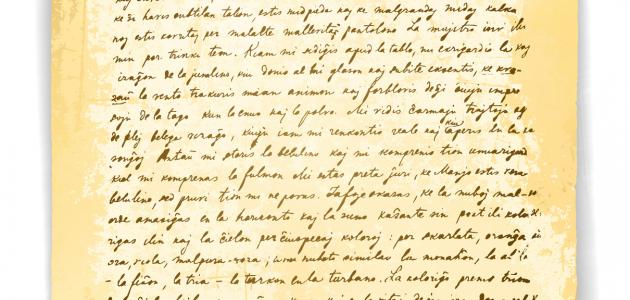 ke ŝi havis subtilan talion, estis nudpieda kaj ke malgrandaj nudaj kalka
noj estis kovritaj per malalte mallevitaj pantalono. La majstro
min por trinki teon. Kiam mi sidiĝis apud la tablo, mi ekrigardis la
zaĝon de la junulino, kiu donis al mi glason kaj subite eksentis, ke kva-
zaŭ la vento trakuris mian animon kaj forblovis de ĝi ĉiujn impre
sojn de la tago kun la enuo kaj la polvo. Mi vidis ĉarmajn trajtojn
de plej belega vizaĝo, kiujn iam mi renkontis reale kaj kiuj aperis en la
sonĝoj. Antaŭ mi staris la belulino kaj mi komprenis tion unuarigarde
kiel mi komprenas la fulmon. Mi estas preta ĵuri, ke Manjo estis vera
belulino, sed pruvi tion mi ne povas. Iafoje okazas, ke la nuboj mal-
orde amasiĝas en la horizonto kaj la suno kaŝante sin post ili kolo
rigas ilin kaj la ĉielon per ĉiuspecaj koloroj: per skarlata, oranĝa,
ora, viola, malpura-roza; unu nubeto similas la monaĥon, la alia
- la fiŝon, la tria - la turkon en la turbano. La koloriĝo prenis